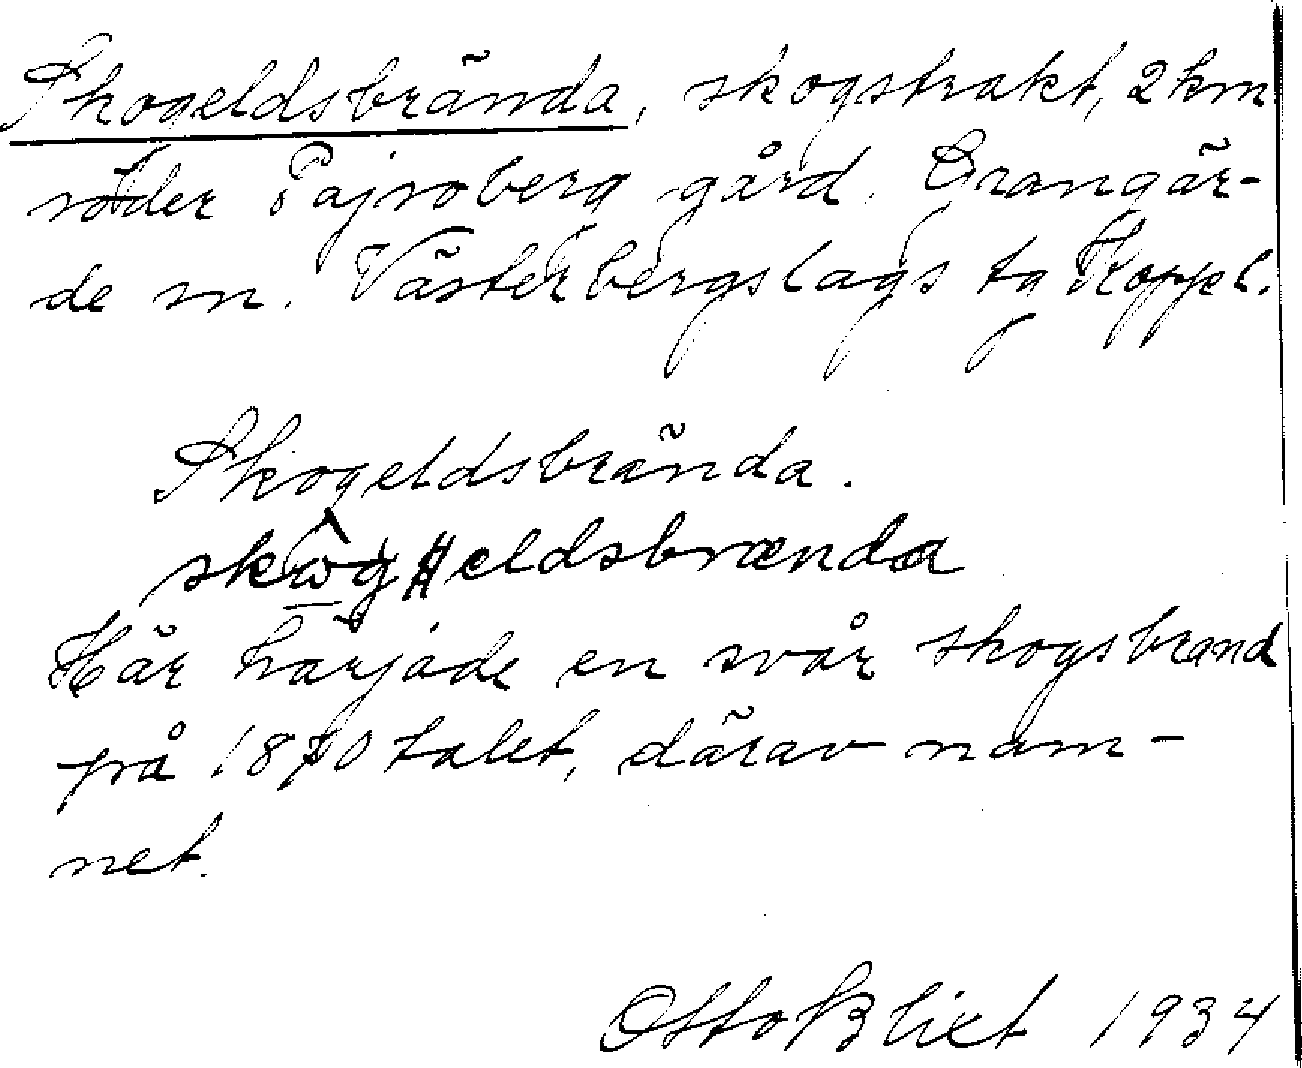 Skogeldsbrända, skogstrakt, 2 km
söder Pajsoberg gård. Grangär-
de sn. Västerbergslags tg Koppb.
Skogeldsbrända.
eldsbrænda
Här härjade en svår skogsbrand
på 1870 talet, därav nam-
net.
Otto Blixt 1934